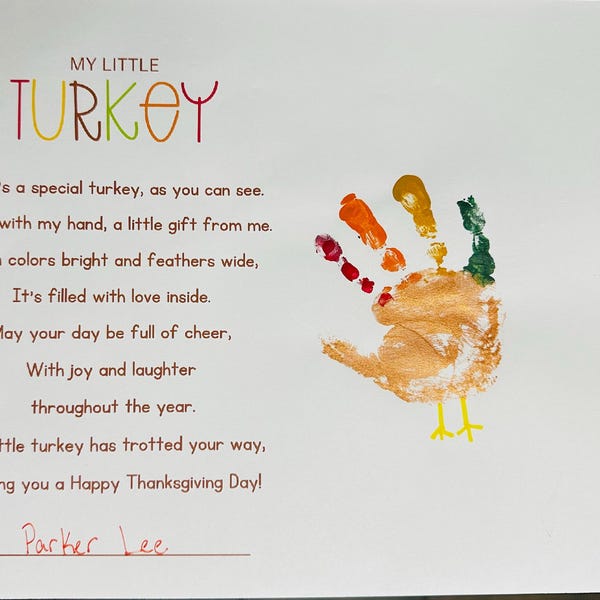 MY LITTLE
TURKEY
a special turkey, as you can see.
with my hand, a little gift from me.
colors bright and feathers wide,
It's filled with love inside.
May your day be full of cheer,
With joy and laughter
throughout the year.
turkey has trotted your way,
you a Happy Thanksgiving Day!
Parker Lee